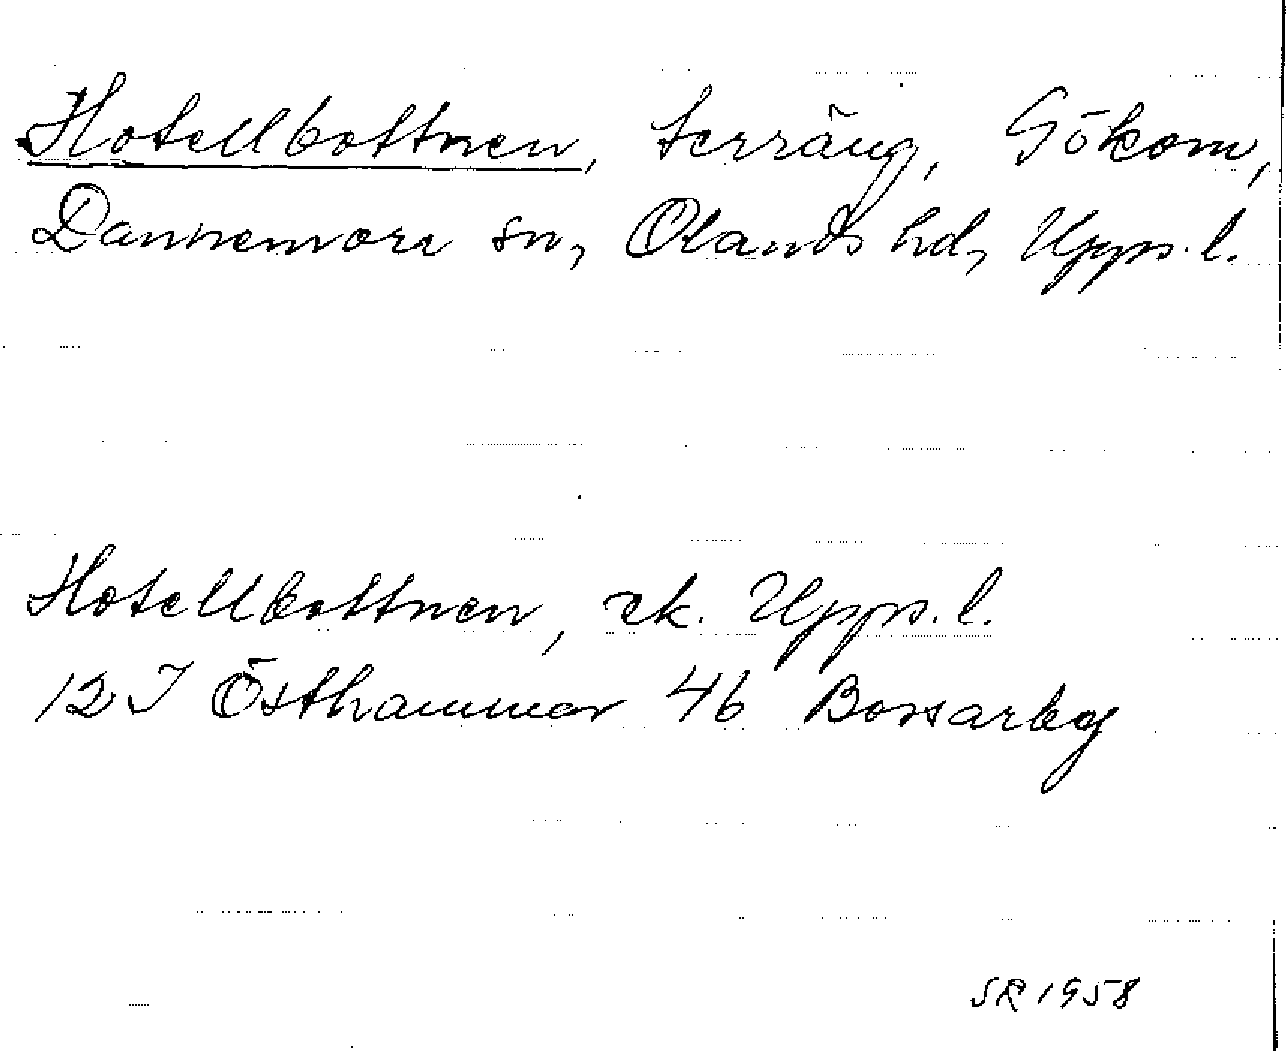 Hotellbottnen, terräng, Gökom,
Dannemora sn, Olands hd, Upps. l.
Hotellbottnen, ek. Upps. l.
12 I Östhammar 46 Bossarby
SR 1958